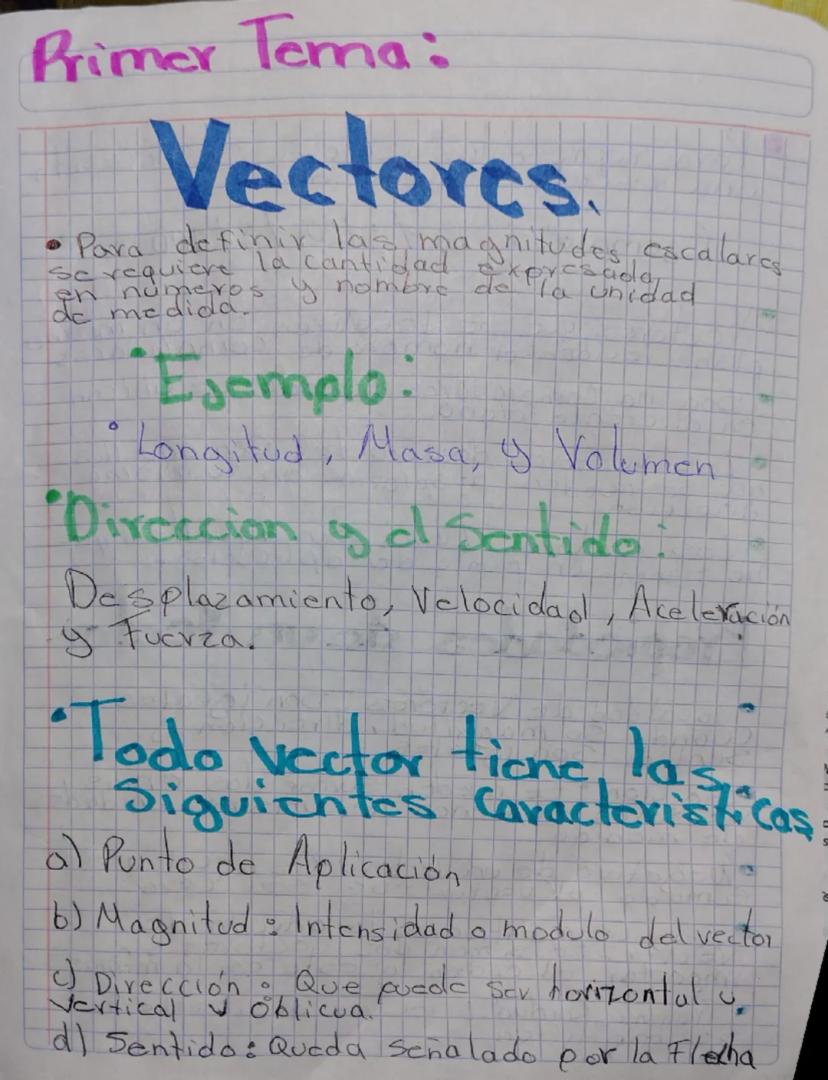 Primer Tema:
Vectores.
• Para definir las magnitudes escalares
se requiere la cantidad expresada
en números y nombre de la unidad
de medida.
• Ejemplo:
° Longitud, Masa, y Volumen
• Direccion y el Sentido:
Desplazamiento, Velocidad, Aceleración
y Fuerza.
• Todo vector tiene las
siguientes caracteristicas
a) Punto de Aplicación
b) Magnitud: Intensidad o modulo del vector
c) Dirección: Que puede ser horizontal y,
vertical y oblicua.
d) Sentido: Queda señalado por la Flecha